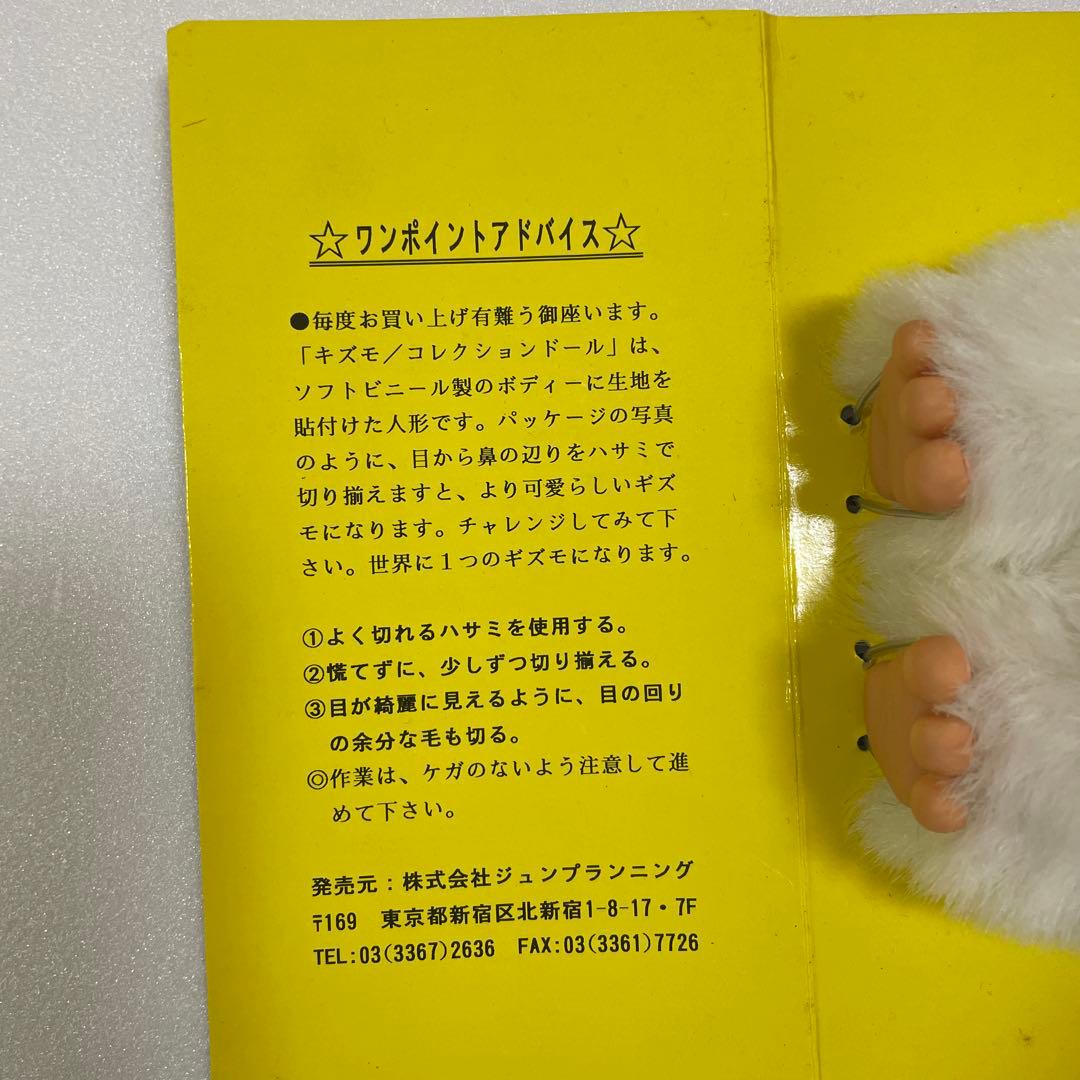 ☆ワンポイントアドバイス☆
●毎度お買い上げ有難う御座います。
「キズモ／コレクションドール」は、
ソフトビニール製のボディーに生地を
貼付けた人形です。パッケージの写真
のように、目から鼻の辺りをハサミで
切り揃えますと、より可愛らしいギズ
モになります。チャレンジしてみて下
さい。世界に１つのギズモになります。
①よく切れるハサミを使用する。
②慌てずに、少しずつ切り揃える。
③目が綺麗に見えるように、目の回り
の余分な毛も切る。
◎作業は、ケガのないよう注意して進
めて下さい。
発売元：株式会社ジュンプランニング
〒169 東京都新宿区北新宿1-8-17・7F
TEL:03(3367)2636 FAX:03(3361)7726